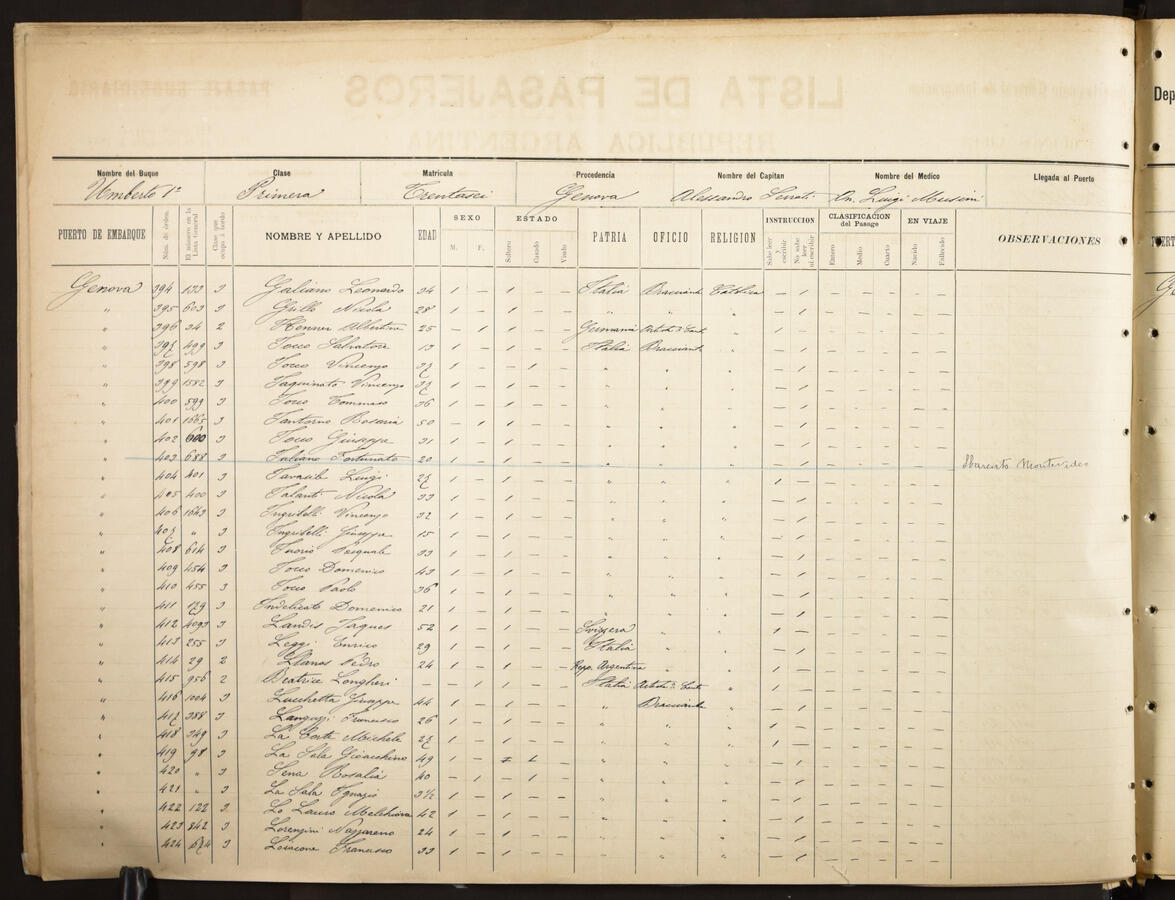 LISTA DE PASAJEROS
REPUBLICA ARGENTINA
Nombre del Buque Clase Matricula Procedencia Nombre del Capitan Nombre del Medico Llegada al Puerto
Umberto 1º Primera Trentasei Genova Alessandro Luigi
PUERTO DE EMBARQUE Núm. de órden. El número en la Lista General Clase que ocupa á bordo NOMBRE Y APELLIDO EDAD SEXO M. F. ESTADO Soltero Casado Viudo PATRIA OFICIO RELIGION INSTRUCCION Sabe leer y escribir No sabe leer ni escribir CLASIFICACION del Pasage Entero Medio Cuarto EN VIAJE Nacido Fallecido OBSERVACIONES
Genova 394 133 3 Galiano Leonardo 34 Italia Bracciante Cattolica
" 395 603 3 Grillo Nicola 28
" 396 34 2 Henner Albertine 25 Germania
" 397 499 3 Tocco Salvatore 13 Italia Bracciante
" 398 598 3 Tocco Vincenzo 37
" 399 1582 3 Vincenzo 37
" 400 599 3 Tocco Tommaso 36
" 401 1665 3 Rosaria 50
" 402 600 3 Tocco Giuseppe 31
" 403 688 3 Fortunato 20 Montevideo
" 404 401 3 Luigi 27
" 405 400 3 Talanti Nicola 33
" 406 1643 3 Vincenzo 32
" 407 " 3 Giuseppe 15
" 408 614 3 Pasquale 33
" 409 454 3 Tocco Domenico 43
" 410 455 3 Tocco Paolo 36
" 411 129 3 Indelicato Domenico 21
" 412 4093 3 Landis Jaques 52 Svizzera
" 413 255 3 Leggi Enrico 29 Italia
" 414 29 2 Llanos Pedro 24 Repp. Argentina
" 415 956 2 Beatrice Longheri — Italia
" 416 1004 3 Lucchetta Giuseppe 44 Bracciante
" 417 388 3 Languzzi Francesco 26
" 418 349 3 La Corte Michele 27
" 419 98 3 La Sala Gioacchino 49
" 420 " 3 Sena Rosalia 40
" 421 " 3 La Sala Ignazio 3½
" 422 122 3 Lo Lauro Melchiorre 42
" 423 342 3 Lorenzini Nazzareno 24
" 424 674 3 Loiacono Francesco 33
Dep